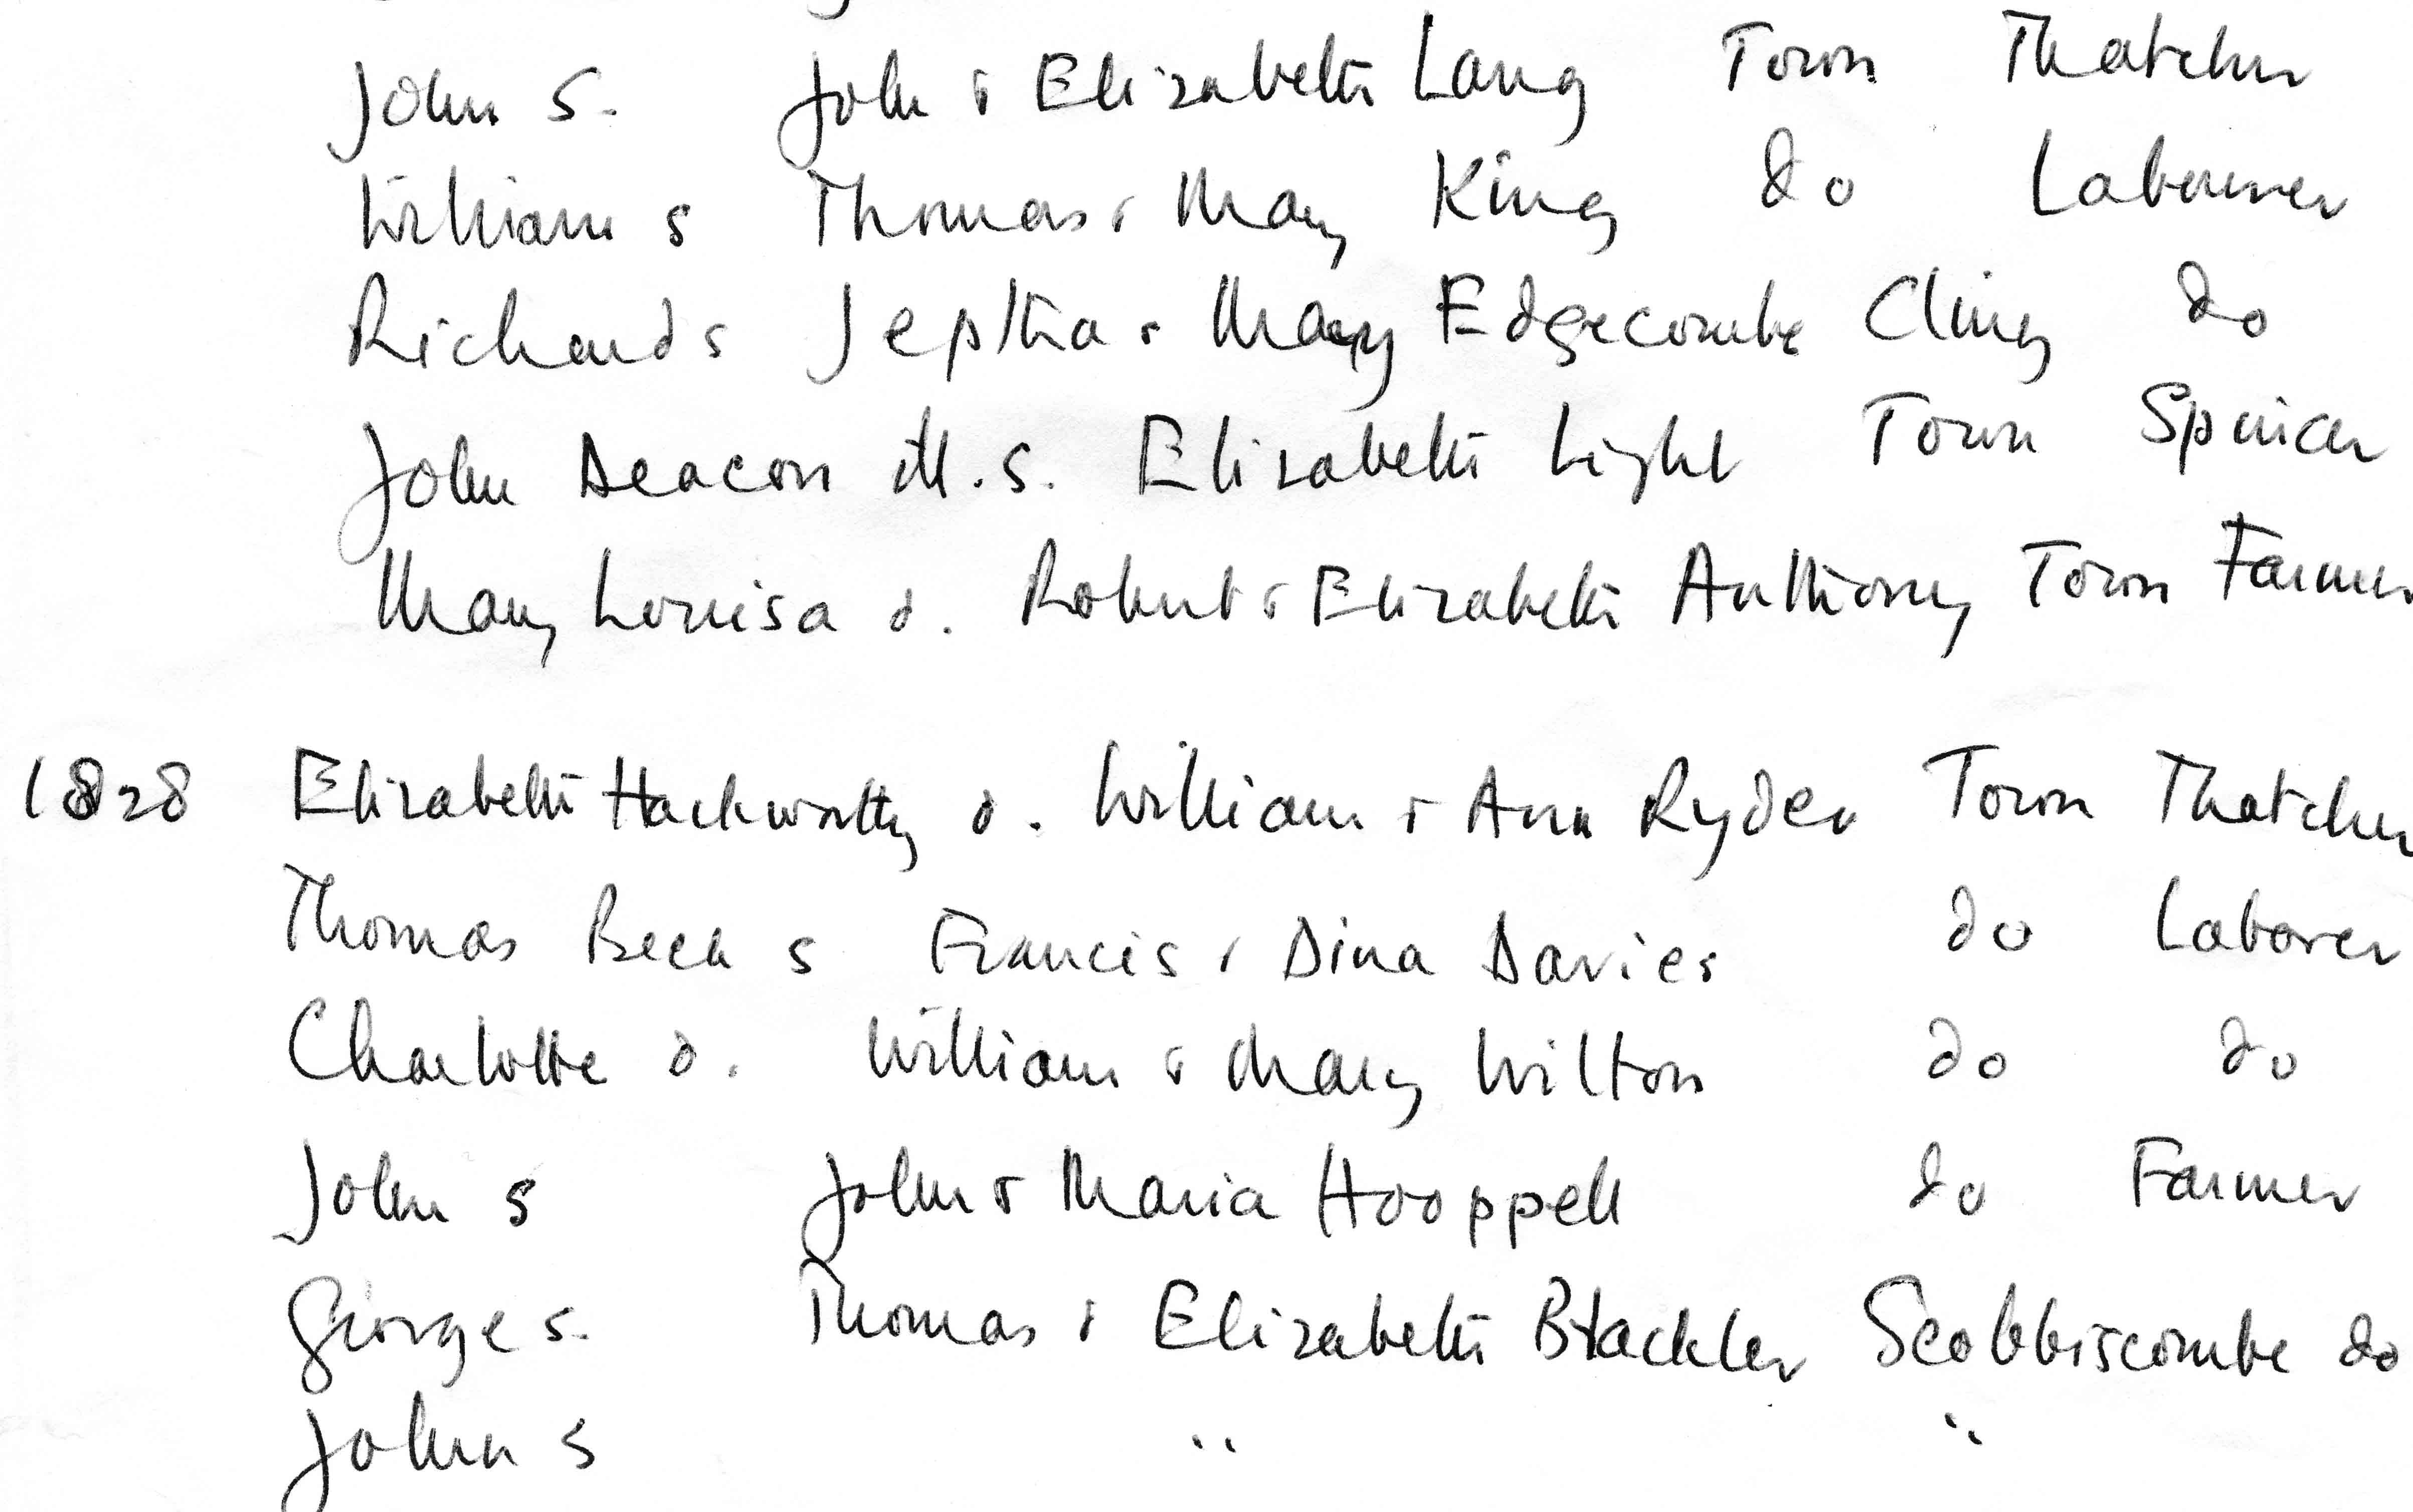 John s. John & Elizabeth Lang Town Thatcher
William s Thomas & Mary King do Labourer
Richard s Jeptha & Mary Edgecombe Cling do
John Deacon ill. s. Elizabeth Light Town Spinster
Mary Louisa d. Robert & Elizabeth Anthony Town Farmer
1828 Elizabeth Hackworthy d. William & Ann Ryder Town Thatcher
Thomas Beer s Francis & Dina Davies do Laborer
Charlotte d. William & Mary Wilton do do
John s John & Maria Hooppell do Farmer
George s. Thomas & Elizabeth Blackler Scobbiscombe do
John s " "